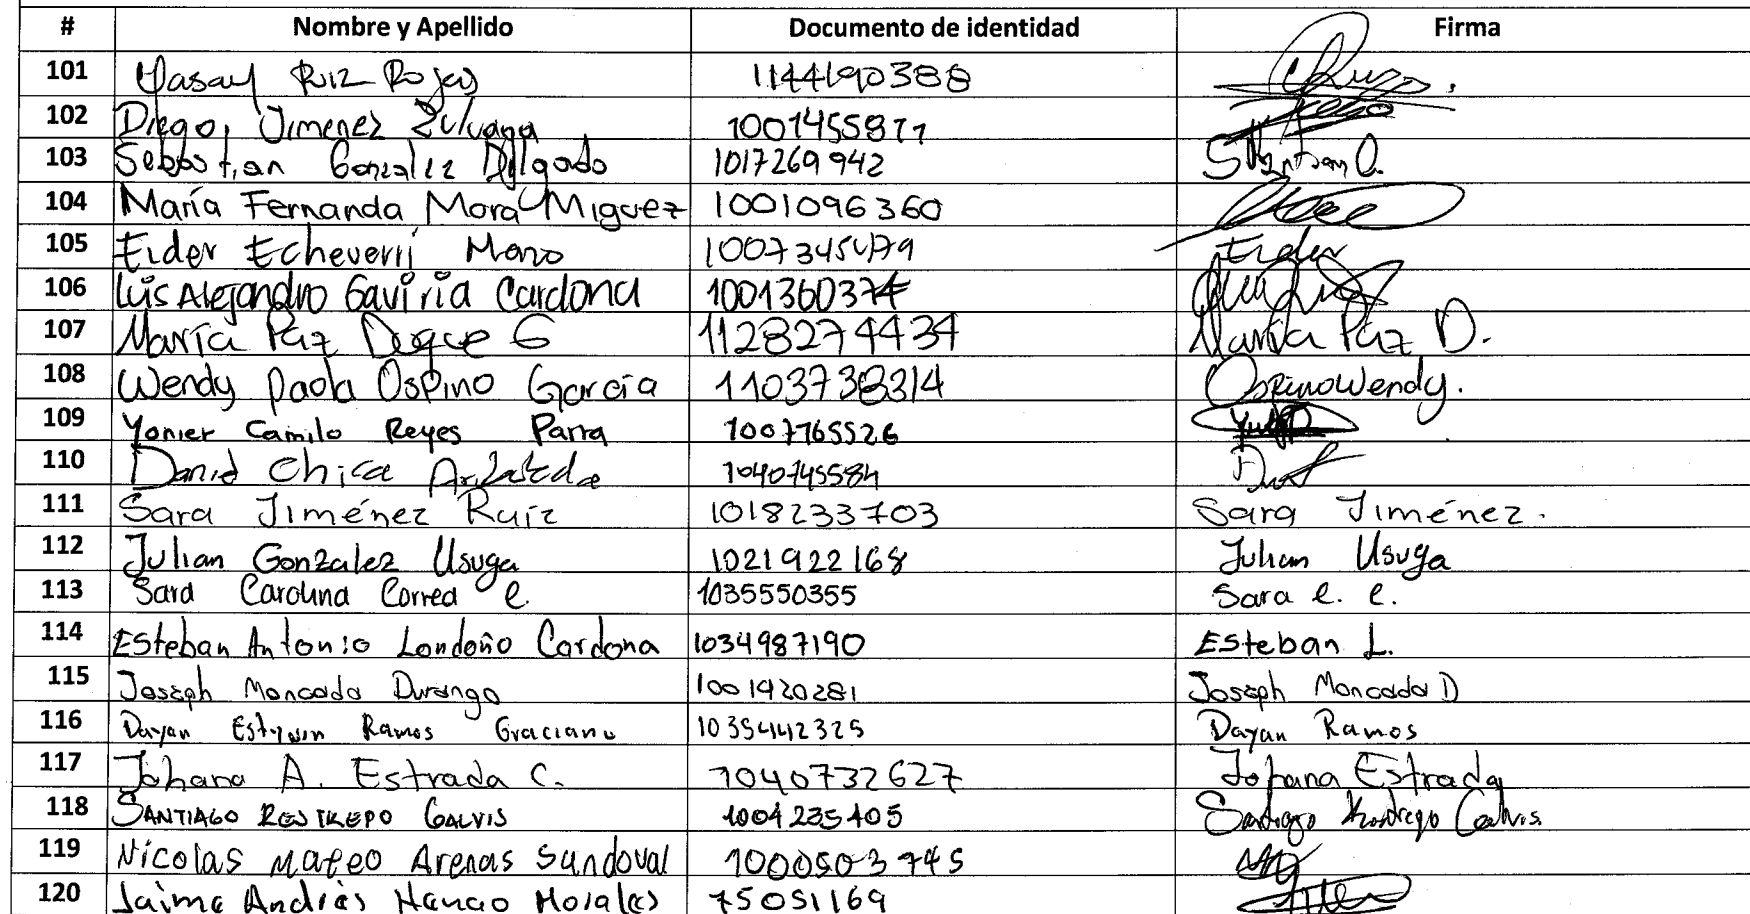 # Nombre y Apellido Documento de identidad Firma
101 Yasay Ruiz Rojas 1144190388
102 Diego Jimenez Zuluaga 1001455871
103 Sebastian Gonzalez Delgado 1017269942
104 María Fernanda Mora Miguez 1001096360
105 Eider Echeverri Mono 1007345479 Eider
106 Luis Alejandro Gaviria Cardona 1001360374
107 María Paz Duque G 11282274434 María Paz D.
108 Wendy Paola Ospino García 1103738314 Ospino Wendy.
109 Yonier Camilo Reyes Parra 1007765526
110 David Chica 1040745584
111 Sara Jiménez Ruíz 1018233703 Sara Jiménez.
112 Julian Gonzalez Usuga 1021922168 Julian Usuga
113 Sara Carolina Correa C. 1035550355 Sara C. C.
114 Esteban Antonio Londoño Cardona 1034987190 Esteban L.
115 Joseph Moncada Durango 1001920281 Joseph Moncada D
116 Dayan Ramos Graciano 1035442325 Dayan Ramos
117 Johana A. Estrada C. 1040732627 Johana Estrada
118 SANTIAGO RESTREPO GALVIS 1004235405 Santiago Restrepo Galvis
119 Nicolas Mateo Arenas Sandoval 1000503745
120 Jaime Andrés Henao Morales 75051169